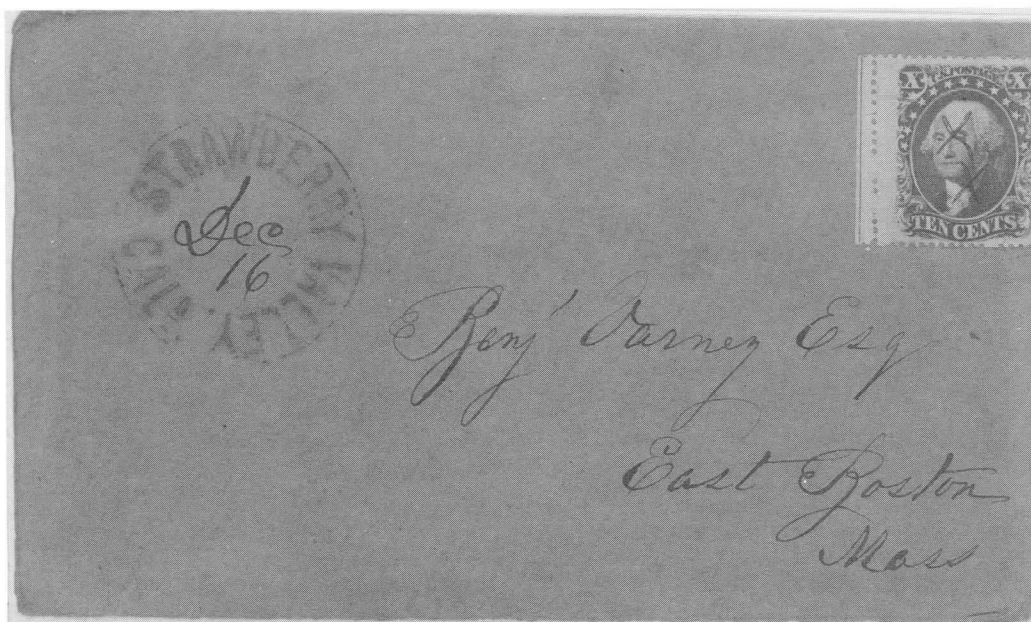 STRAWBERRY VALLEY,
Dec
16
X U.S. POSTAGE X
TEN CENTS
Benj' Varney Esq
East Boston
Mass